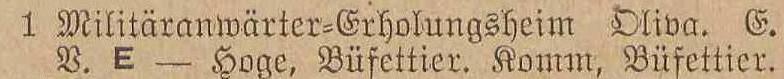 1 Militäranwärter-Erholungsheim Oliva. E.
V. E — Hoge, Büfettier. Komm, Büfettier.